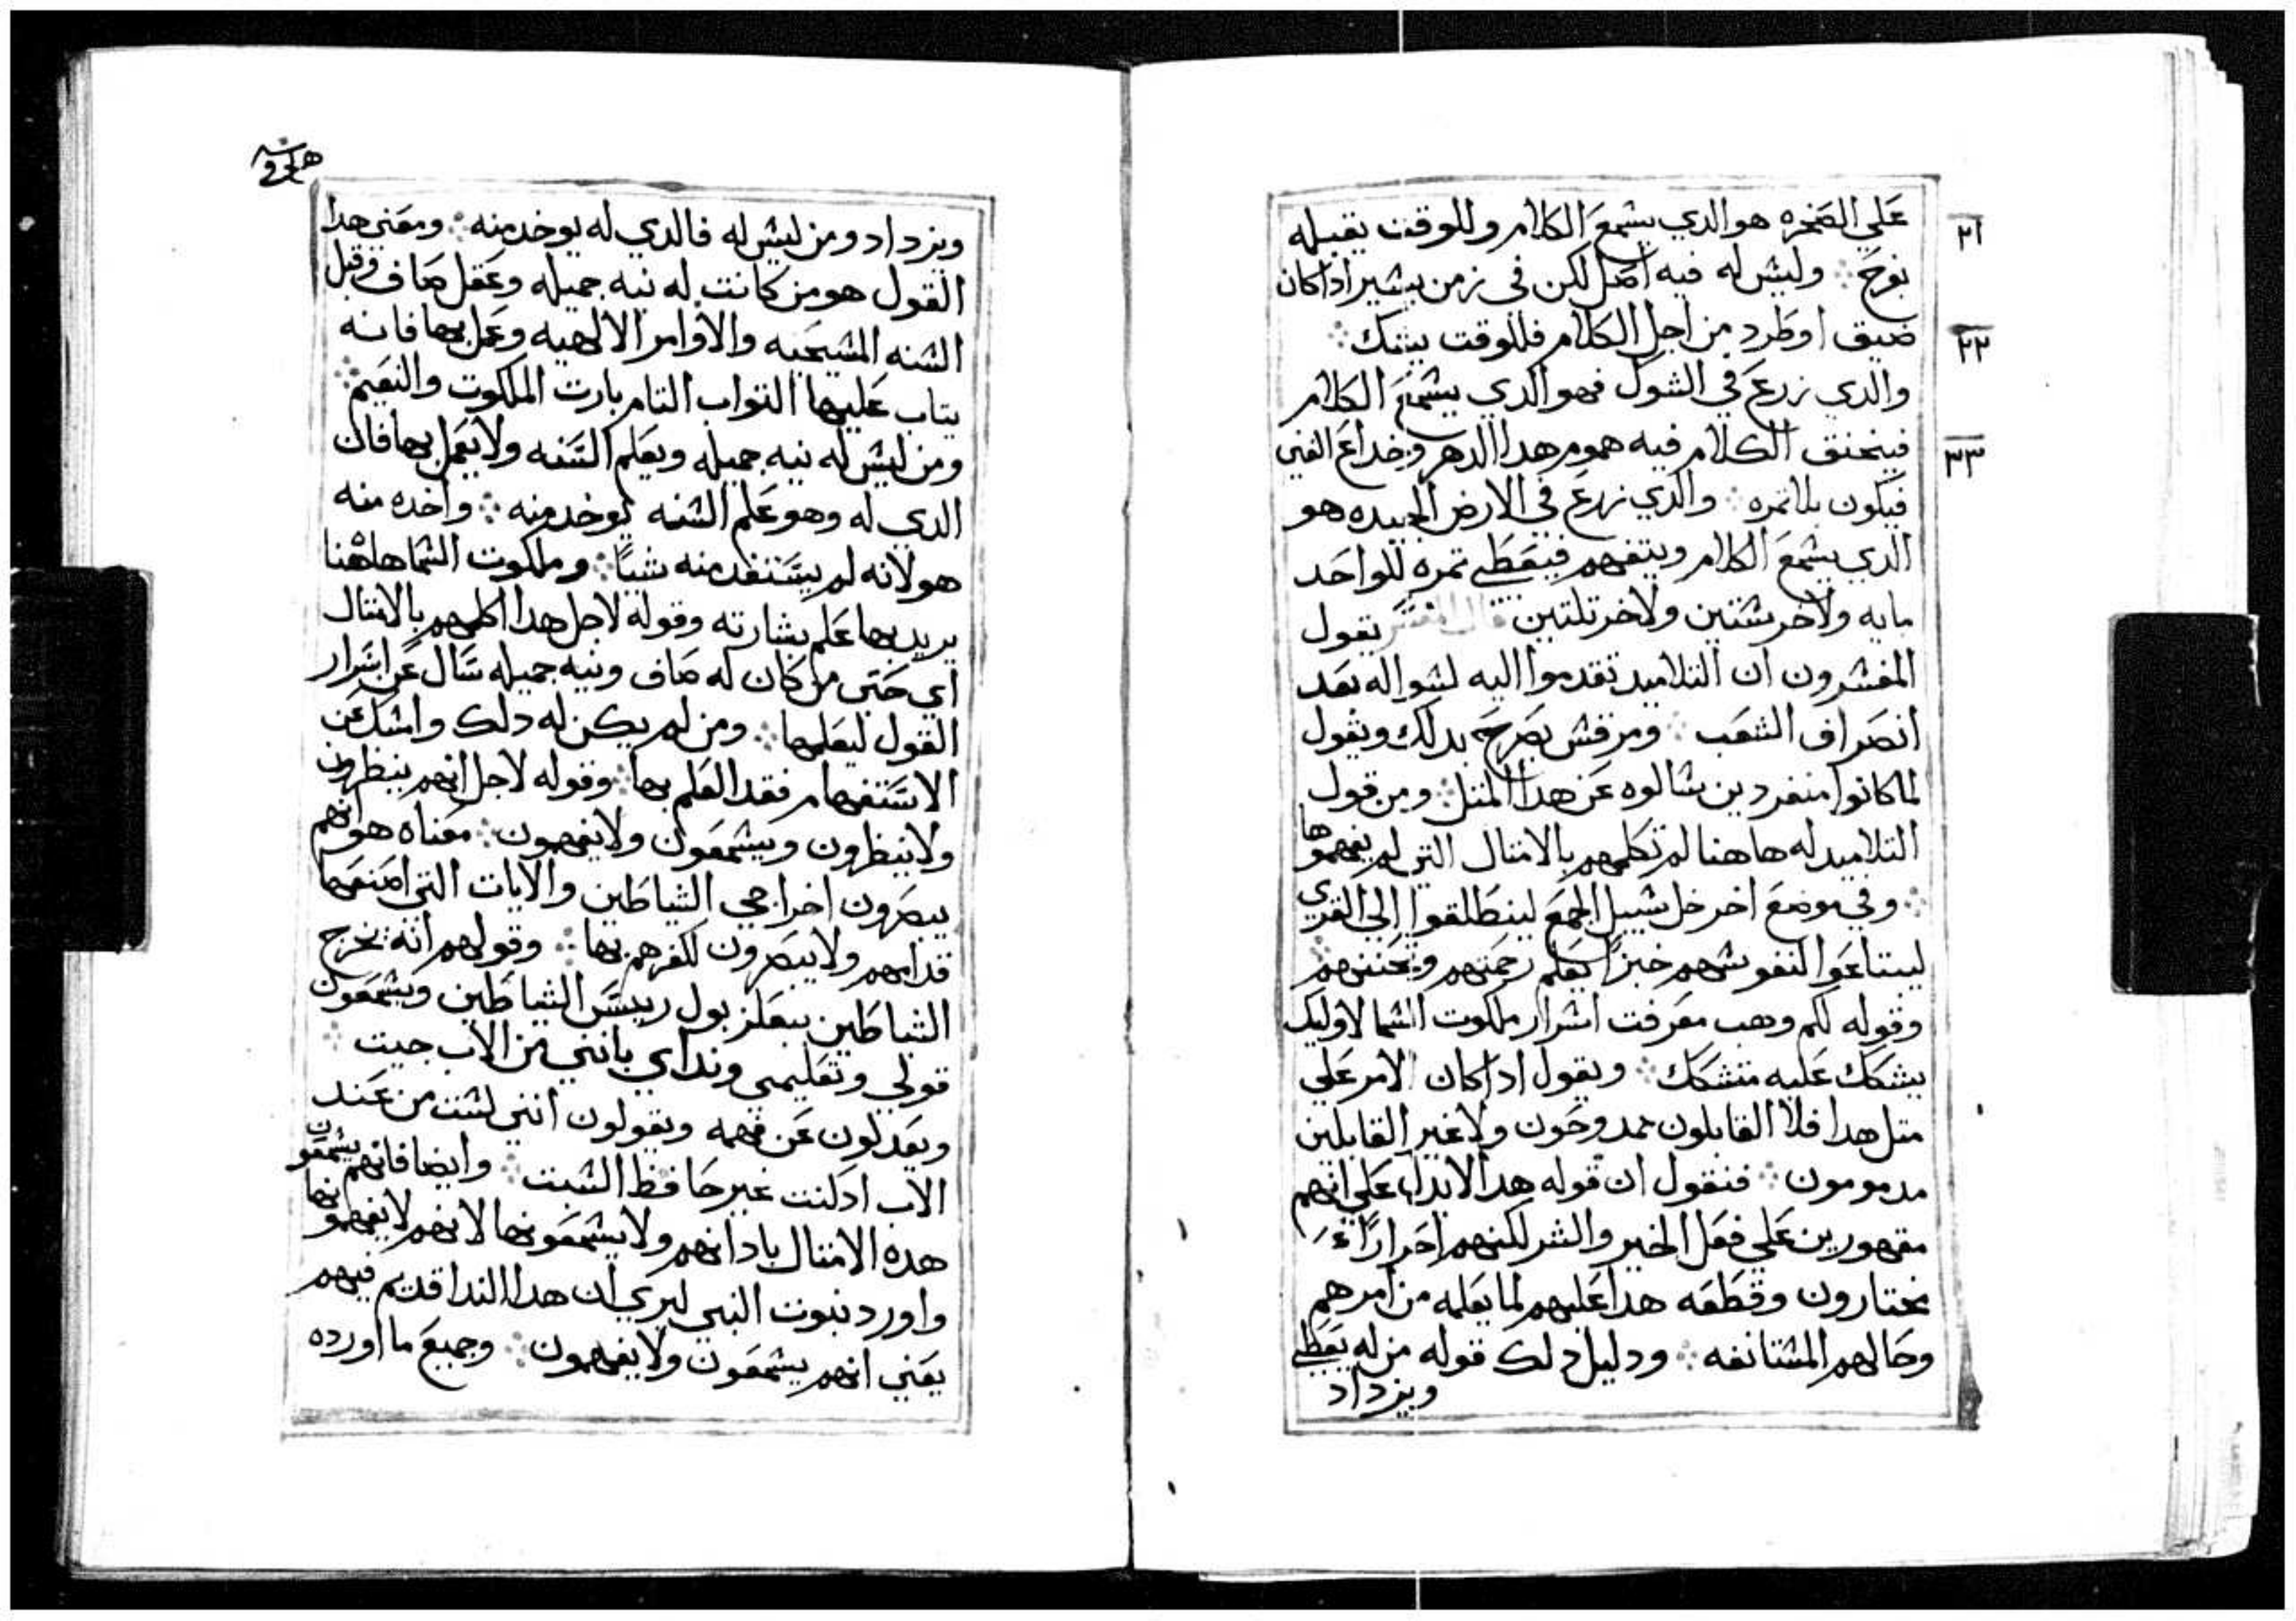 ٢١
علي الصخره هو الدي يشمع الكلام وللوقت يقبله
بفرح ؞ وليش له فيه اصل لكن في زمن يشير اداكان
٢٢
ضيق او طرد من اجل الكلام فللوقت يشك ؞
والدي زرع في الشوك فهو الدي يشمع الكلام
٢٣
فيخنق الكلام فيه هموم هدا الدهر وخداع الغني
فيكون بلاتمره ؞ والدي زرع في الارض الجيده هو
الدي يشمع الكلام ويتفهم فيعطي تمره للواحد
مايه ولاخر شتين ولاخر تلتين قال المفشر يقول
المفشرون ان التلاميد تقدموا اليه لشواله بعد
انصراف الشعب ؞ ومرقش يصرح بدلك ويقول
لما كانوا منفردين شالوه عن هدا المتل ؞ ومن قول
التلاميد له هاهنا لم تكلمهم بالامتال التي لم يفهموها
؞ وفي موضع اخر خل شبيل الجمع لينطلقوا الي القري
ليبتاعوا لنفوشهم خبزا يعلم رحمتهم وتحننهم
وقوله لكم وهب معرفت اشرار ملكوت الشما لاوليك
يشكك عليه متشكك ؞ ويقول اداكان الامر علي
متل هدا فلا القابلون ممدوحون ولا غير القابلين
مدمومون ؞ فنقول ان قوله هدا لايدل علي انهم
مقهورين علي فعل الخير والشر لكنهم احرارًا
يختارون وقطعه هدا عليهم لما يعلمه من امرهم
وحالهم المشتانفه ؞ ودليل دلك قوله من له يعطي
ويزداد
ويزداد ومن ليش له فالدي له يوخد منه ؞ ومعني هدا
القول هو من كانت له نيه جميله وعقل صاف وقبل
الشنه المشيحيه والاوامر الالهيه وعمل بها فانه
يتاب عليها التواب التام بارت الملكوت والنعيم ؞
ومن ليش له نيه جميله ويعلم السنه ولايعمل بها فان
الدي له وهو علم الشنه يوخد منه ؞ واخده منه
هو لانه لم يستنفد منه شيًا ؞ وملكوت الشما هاهنا
يريد بها علم بشارته وقوله لاجل هدا اكلمهم بالامتال
اي حتي من كان له صاف ونيه جميله سال عن اسرار
القول ليعلمها ؞ ومن لم يكن له دلك وامشك عن
الاستفهام فقد العلم بها ؞ وقوله لاجل انهم ينظرون
ولا ينظرون ويشمعون ولا يفهمون ؞ معناه هو انهم
يبصرون اخراجي الشياطين والايات التي اصنعها
قدامهم ولا يبصرون لكفرهم بها ؞ وقولهم انه يخرج
الشياطين ببعلزبول رييس الشياطين ويشمعون
قولي وتعليمي ونداي بانني من الاب جيت ؞
ويعدلون عن فهمه ويقولون انني لشت من عند
الاب ادلنت غير حافظ الشبت ؞ وايضا فانهم يشمعون
هده الامتال بادانهم ولا يشمعونها لانهم لا يفهمونها
واورد نبوت النبي ليري ان هدا الندا قديم فيهم
يعني انهم يشمعون ولا يفهمون ؞ وجميع ما اورده